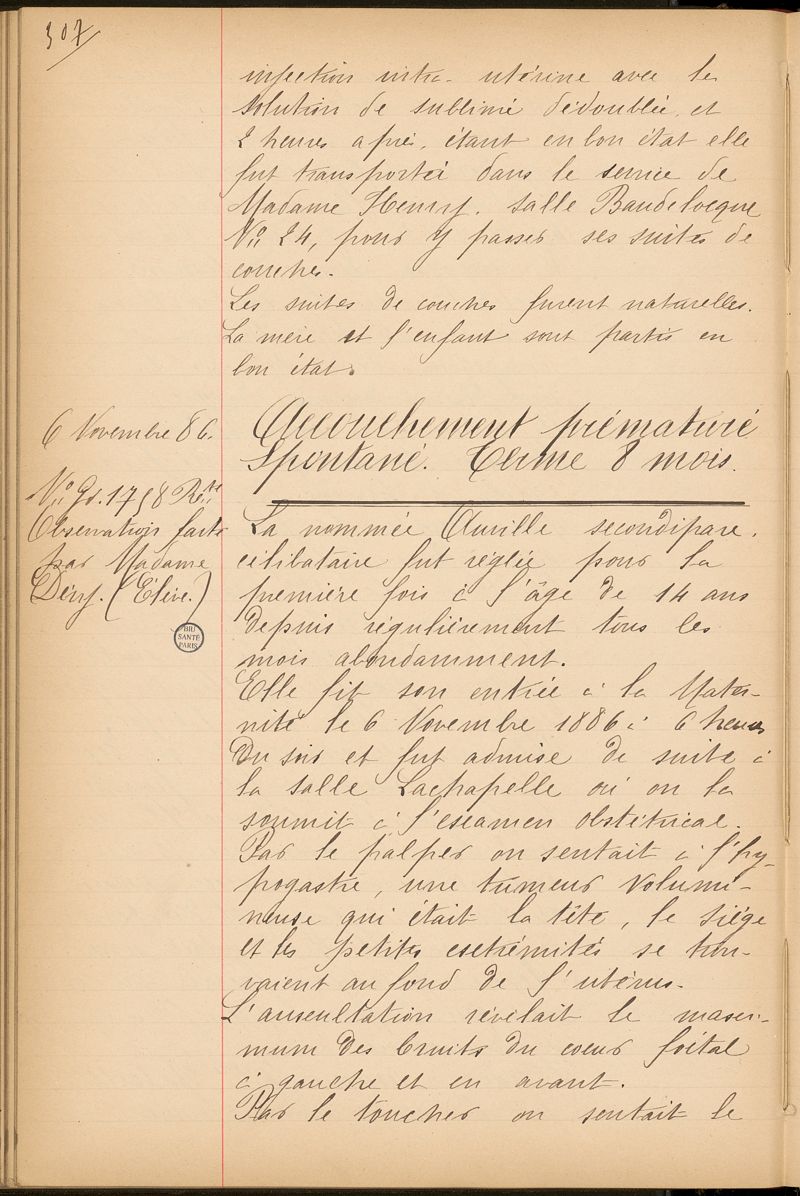 307
injection intra-utérine avec la
solution de sublimé dédoublée, et
2 heures après, étant en bon état elle
fut transportée dans le service de
Madame Henry. salle Baudelocque
No 24, pour y passer ses suites de
couches.
Les suites de couches furent naturelles.
La mère et l'enfant sont partis en
bon état.
6 Novembre 86.
No Gd. 1758 Rtte
Observation faite
par Madame
Déry. (Elève.)
BIU
SANTÉ
PARIS
Accouchement prématuré
Spontané. Terme 8 mois.
La nommée Auville secondipare,
célibataire fut réglée pour la
première fois à l'âge de 14 ans
depuis régulièrement tous les
mois abondamment.
Elle fit son entrée à la Mater-
nité le 6 Novembre 1886 à 6 heures
du soir et fut admise de suite à
la salle Lachapelle où on la
soumit à l'examen obstétrical.
Par le palper on sentait à l'hy-
pogastre, une tumeur volumi-
neuse qui était la tête, le siège
et les petites extrémités se trou-
vaient au fond de l'utérus.
L'auscultation révélait le maxi-
mum des bruits du coeur foetal
à gauche et en avant.
Par le toucher on sentait le